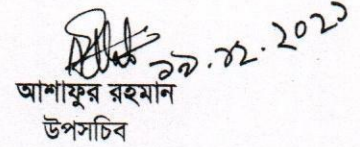 ২৯.১২.২০২১
আশাফুর রহমান
উপসচিব